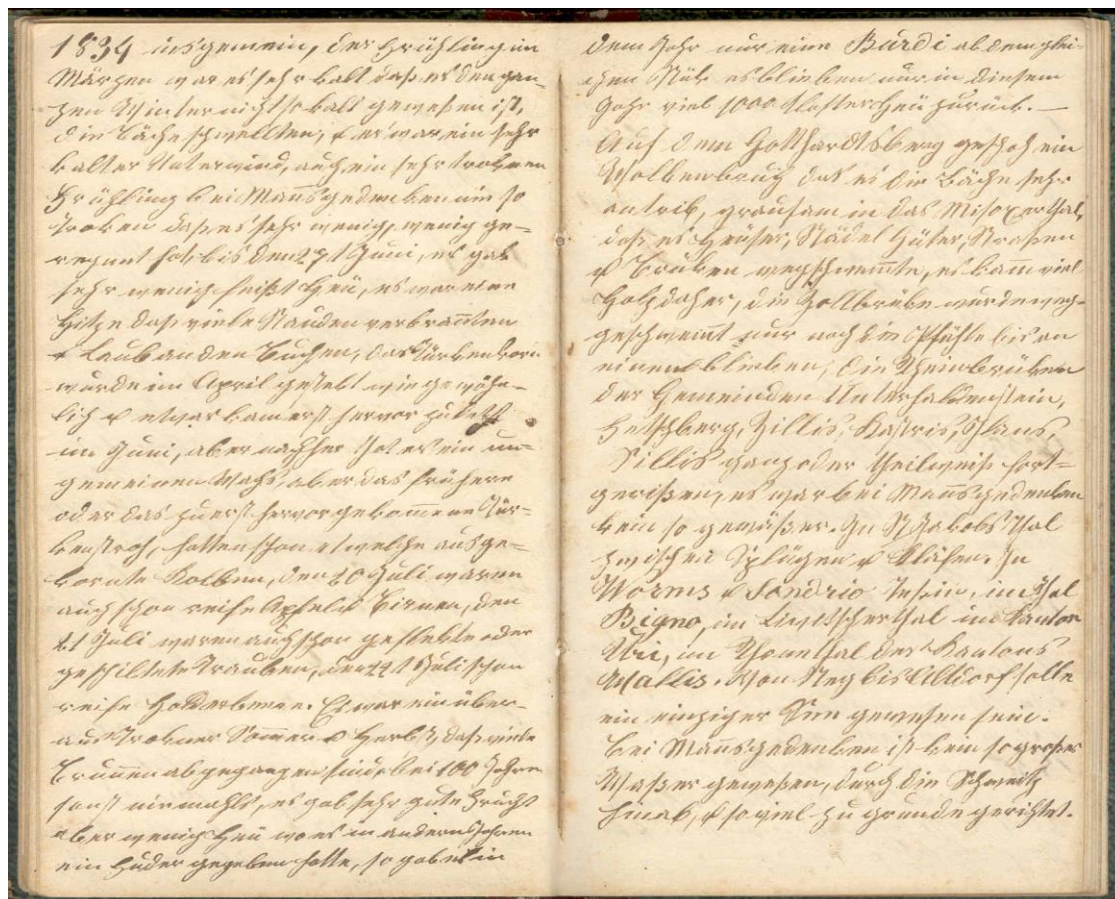 1834 insgemein, der Frühling im
Märzen war es sehr kalt daß es den gan-
zen Winter nicht so kalt gewesen ist,
die Bäche schwellten, & es war ein sehr
kalter Unterwind, auch ein sehr troknen
Frühling bei Mañsgedenken nie so
troken daß es sehr wenig, wenig ge-
regnet hat, bis den 27t Juni, es gab
sehr wenig feißt Heü, es war eine
Hitze daß viele Stauden verbrañten
& Laub an den Buchen, das Türkenkorn
wurde im April gesetzt wie gewöhn-
lich & etwas kam erst hervor zuletzt
im Juni, aber nachher hat es ein un-
gemeinen Wachs, aber das frühere
oder das zuerst hervorgekommene Tür-
kenstroh, hatten schon etwelche ausge-
kornte Kolben, den 20 Juli waren
auch schon reife Apfel & Birnen, den
21 Juli waren auch schon geflekte oder
geschiltete Trauben, den 24t Juli schon
reife Holderbeere. Es war ein über-
aus trokner Somer & Herbst, daß viele
Bruñen abgegangen sind bei 100 Jahren
sonst niemahls, es gab sehr gute Frucht
aber wenig Heü wo es in andern Jahren
ein Fuder gegeben hatte, so gab es in
dem Jahr nur eine Bürdi ab dem glei-
chen Stük es blieben nur in diesem
Jahr viel 1000 Klafter Heü zurük. —
Auf dem Gotthardtsberg geschah ein
Wolkenbruch daß es die Bäche sehr
antrib, grausam in das Misoxerthal,
daß es Heüser, Städel Güter, Straßen
& Brüken wegschwemte, es kam viel
Holz daher, die Zollbrüke wurde weg-
geschwemt nur noch die Pfühle bis an
einen blieben, die Rheinbrüken
der Gemeinden Unterhaldenstein,
Feltsberg, Zillis, Kastris, Ilans
Sillis ganz oder theilweise fort-
gerißen, es war bei Mañsgedenken
kein so gewäßer. In St Jakobs Thal
zwischen Splügen & Kläfen. In
Worms & Sondrio Tessin, im Thal
Bigno, im Lintscherthal im Kanton
Uri, im Rhonnthal des Kantons
Wallis. Von Steg bis Altdorf solle
ein einziger See gewesen sein.
Bei Mañsgedenken ist kein so großes
Waßer gewesen, durch die Schweitz
hinab, & so viel zu grunde gerichtet.